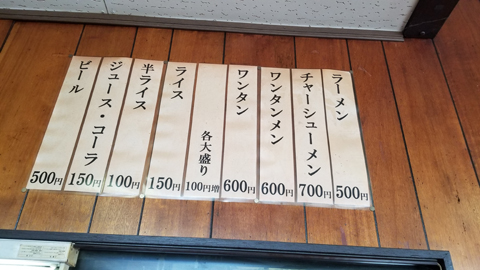 ラーメン 500円
チャーシューメン 700円
ワンタンメン 600円
ワンタン 600円
各大盛り 100円増
ライス 150円
半ライス 100円
ジュース・コーラ 150円
ビール 500円